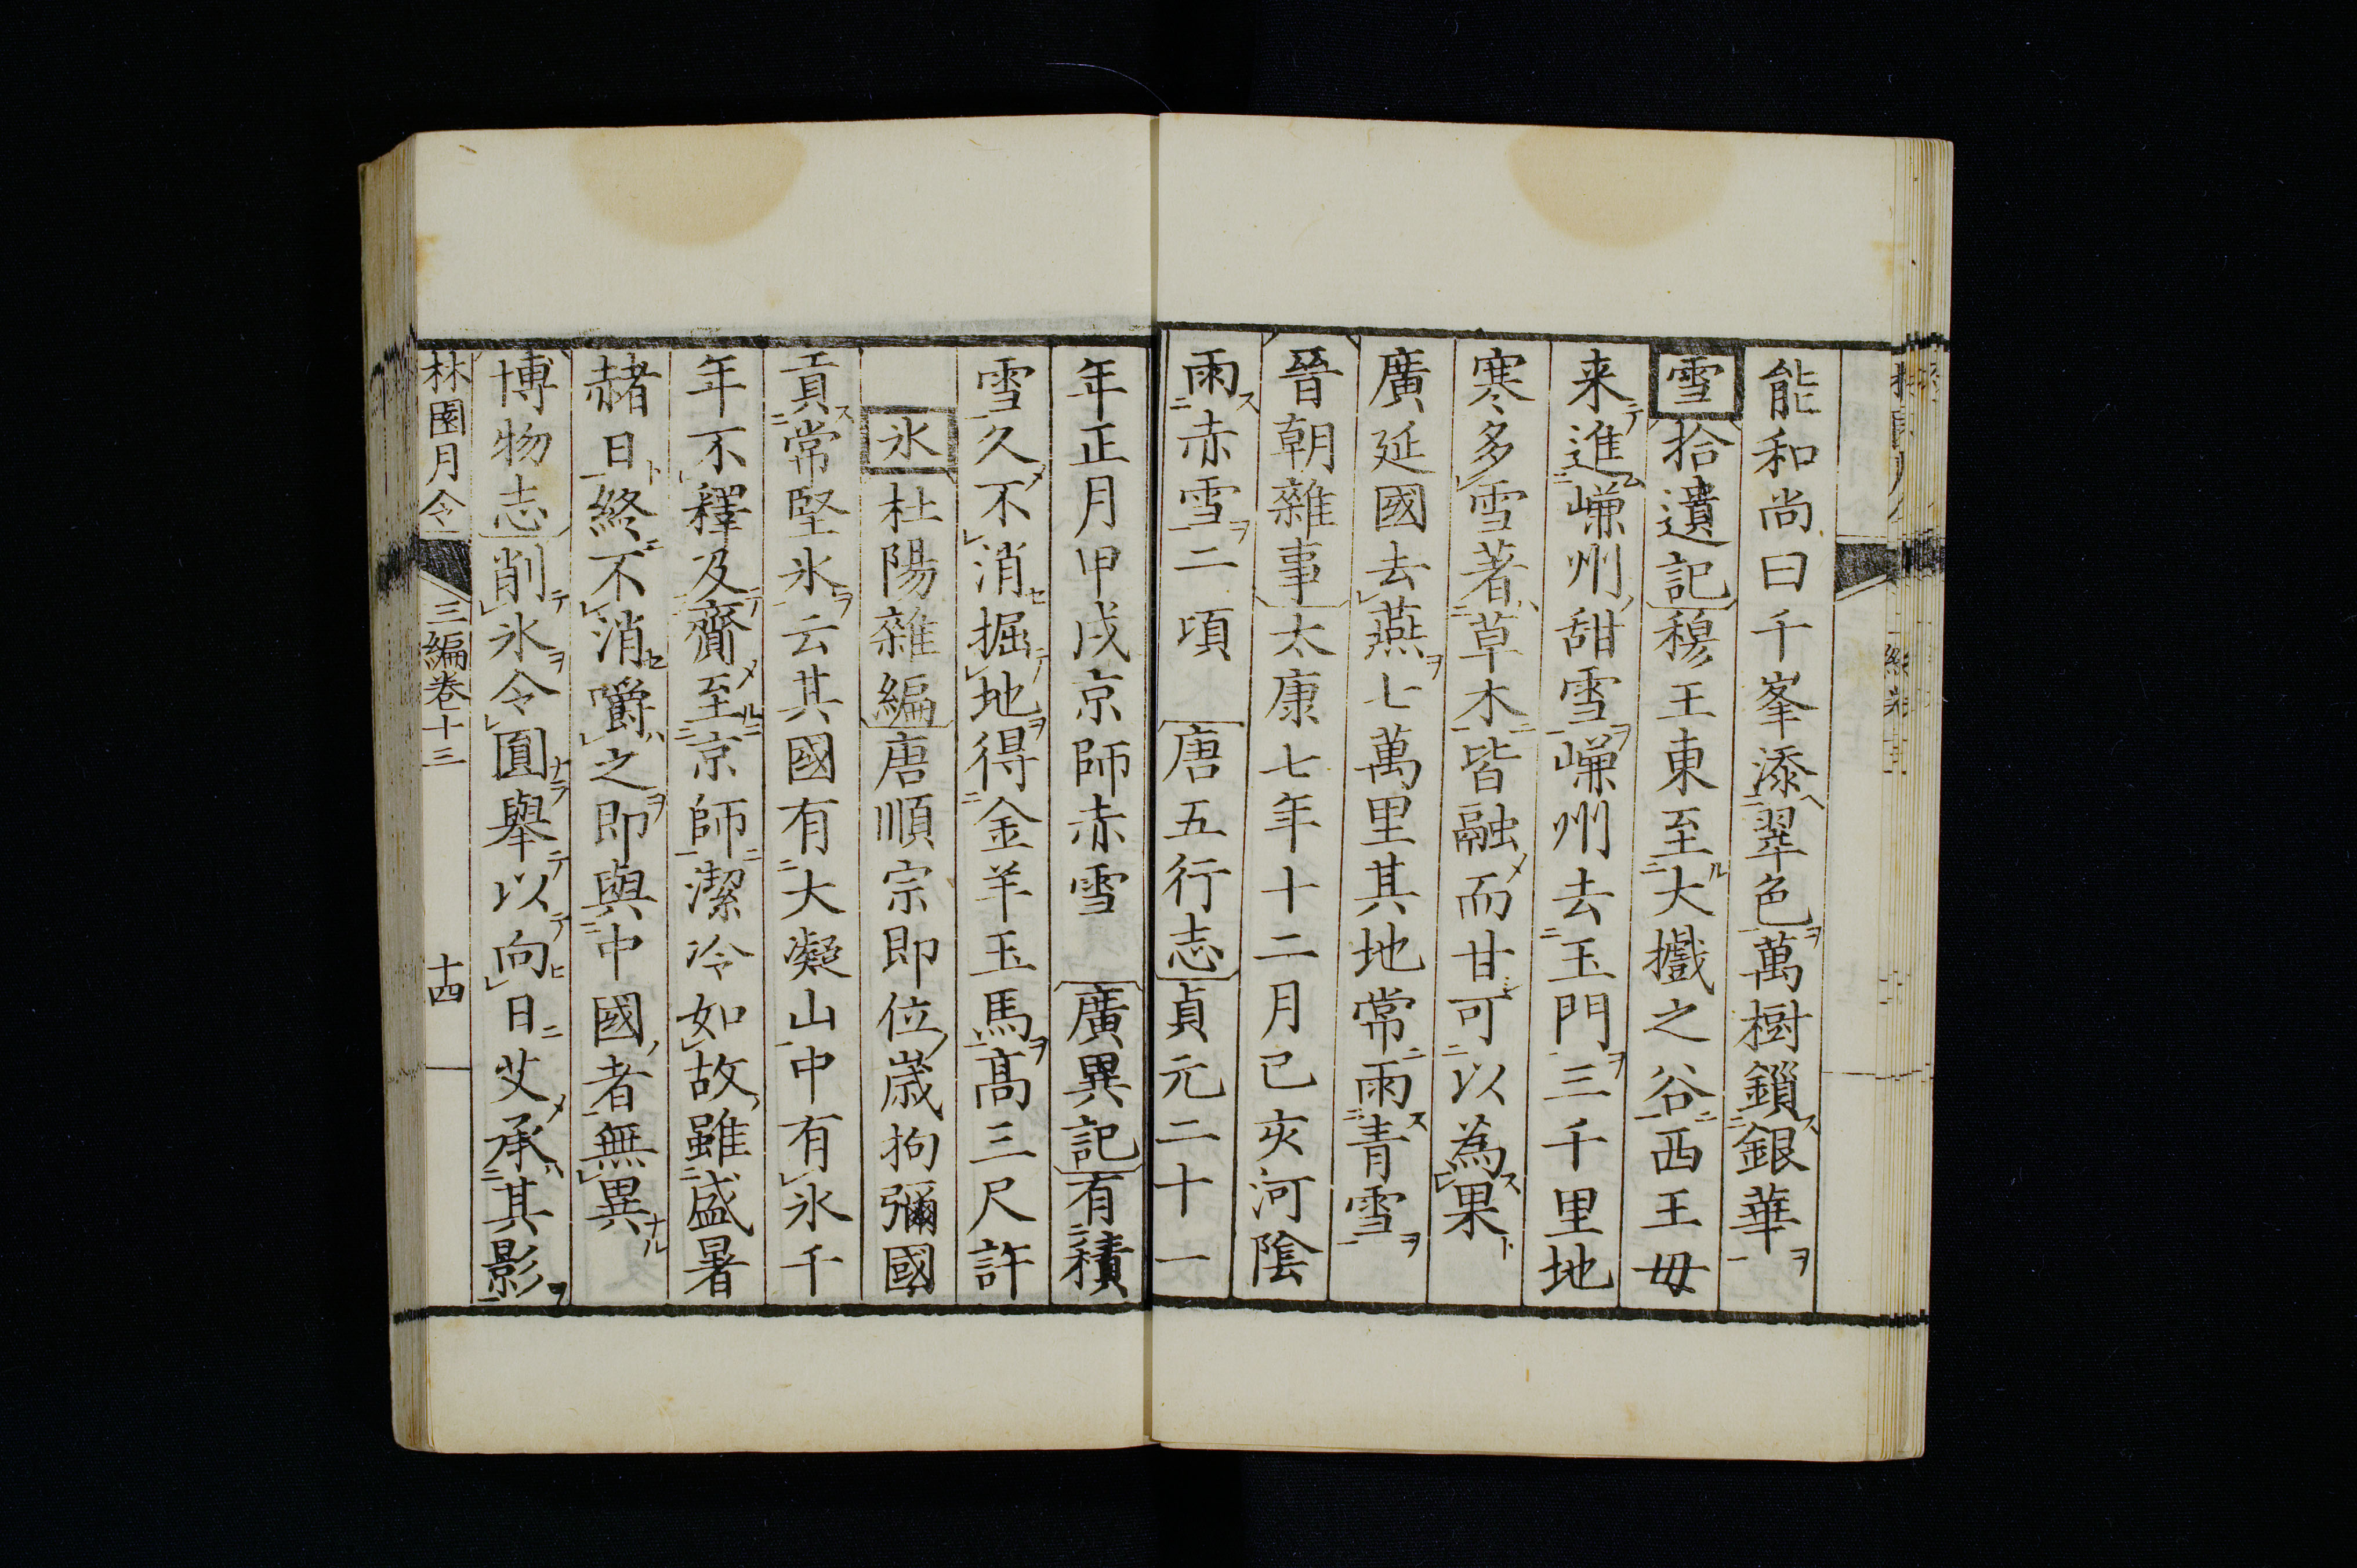 能和尚曰千峯添翠色萬樹鎖銀華
雪拾遺記穆王東至大𢹍之谷西王母
来進嵰州甜雪嵰州去玉門三千里地
寒多雪著草木皆融而甘可以為果
廣延國去燕七萬里其地常雨青雪
晉朝雜事太康七年十二月己亥河陰
雨赤雪二項 唐五行志貞元二十一
年正月甲戌京師赤雪 廣異記有積
雪久不消掘地得金羊玉馬高三尺許
氷杜陽雜編唐順宗即位嵗拘彌國
貢常堅氷云其國有大凝山中有氷千
年不釋及齎至京師潔冷如故雖盛暑
赭日終不消嚼之即與中國者無異
博物志削氷令圓舉以向日艾承其影
林園月令 三編卷十三 十四